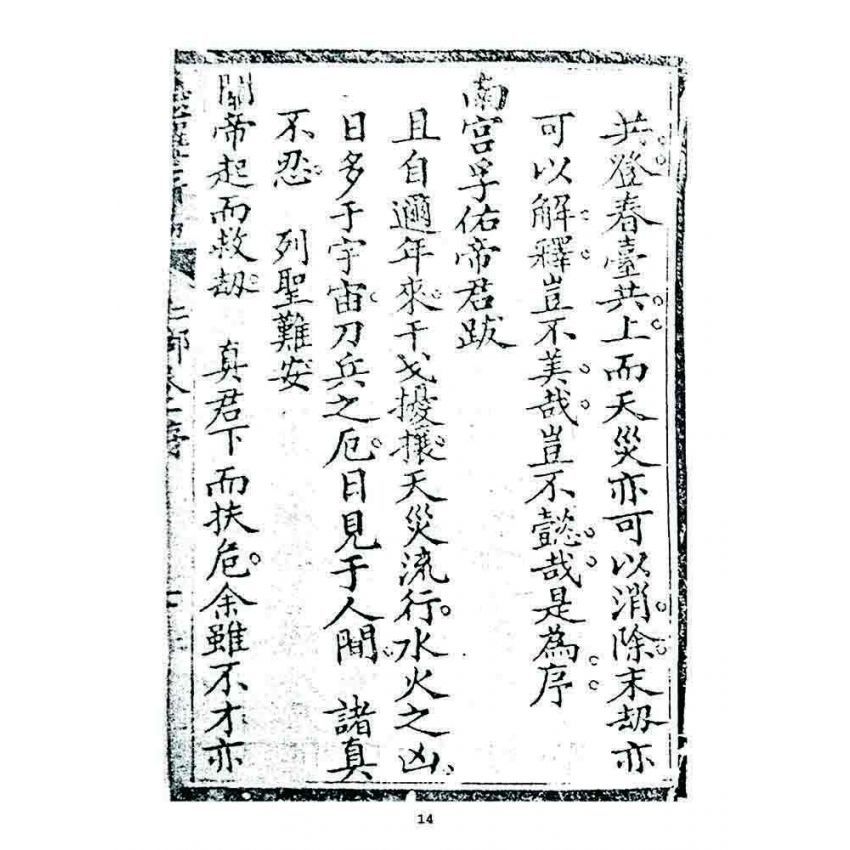 共登春臺共上而天災亦可以消除末劫亦
可以解釋豈不美哉豈不懿哉是為序
南宮孚佑帝君跋
且自邇年來干戈擾攘天災流行水火之凶
日多于宇宙刀兵之厄日見于人間 諸真
不忍 列聖難安
關帝起而救劫 真君下而扶危余雖不才亦
14